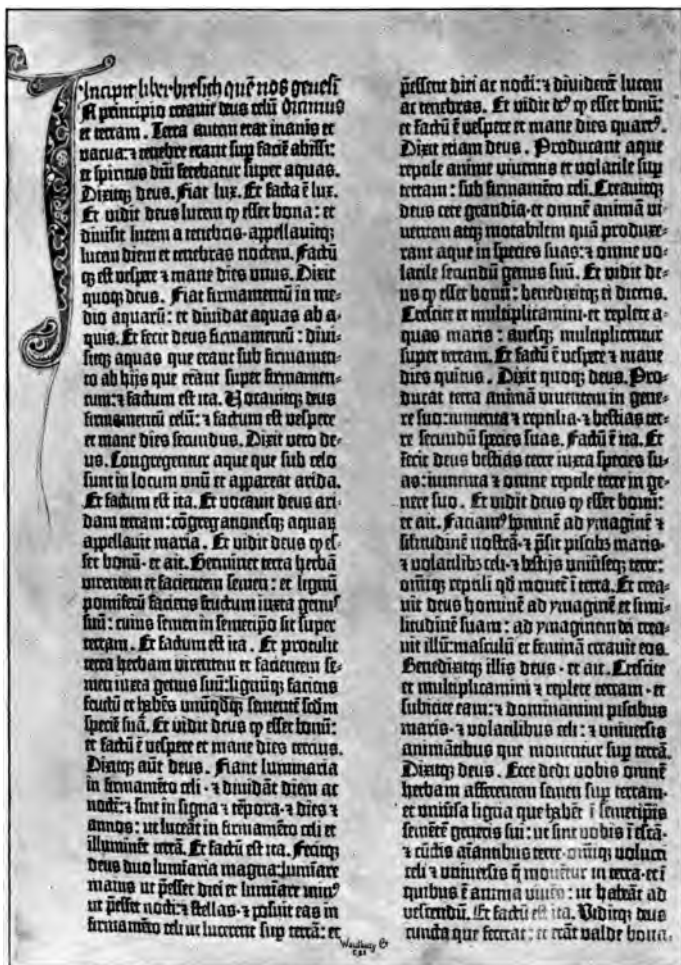 Incipit liber bresich quē nos genesī
N principio creavit deus celū dicimus
et terram. Terra autem erat inanis et
vacua: ⁊ tenebre erant sup faciē abissi:
et spiritus dn̄i ferebatur super aquas.
Dixitqꝫ deus. Fiat lux. Et facta ē lux.
Et vidit deus lucem ꝙ esset bona: et
divisit lucem a tenebris·appellavitqꝫ
lucem diem et tenebras noctem. Factū
qꝫ est vespere ⁊ mane dies unus. Dixit
quoqꝫ deus. Fiat firmamentū in me-
dio aquarū: et dividat aquas ab a-
quis. Et fecit deus firmamentū: divi-
sitqꝫ aquas que erant sub firmamen-
to ab hijs que erant super firmamen-
tum: ⁊ factum est ita. Vocavitqꝫ deus
firmamentū celū: ⁊ factum est vespere
et mane dies secundus. Dixit vero de-
us. Congregentur aque que sub celo
sunt in locum unū et appareat arida.
Et factum est ita. Et vocavit deus ari-
dam terram: cōgregationesqꝫ aquaꝝ
appellavit maria. Et vidit deus ꝙ es-
set bonū· et ait. Germinet terra herbā
virentem et facientem semen: et lignū
pomiferū faciens fructum iuxta genus
suū: cuius semen in semetipo sit super
terram. Et factum est ita. Et protulit
terra herbam virentem et facientem se-
men iuxta genus suū: lignūqꝫ faciens
fructū et habēs unūqdqꝫ sementē scdm
speciē suā. Et vidit deus ꝙ esset bonū:
et factū ē vespere et mane dies tercius.
Dixitqꝫ aūt deus. Fiant luminaria
in firmamēto celi· ⁊ dividāt diem ac
noctē: ⁊ sint in signa ⁊ tēpora· ⁊ dies ⁊
annos: ut luceāt in firmamēto celi et
illuminēt terrā. Et factū est ita. Fecitqꝫ
deus duo luminaria magna: lumīare
maius ut p̄esset diei et lumīare minus
ut p̄esset nocti: ⁊ stellas· ⁊ posuit eas in
firmamēto celi ut lucerent sup terrā: et
p̄essent diei ac nocti: ⁊ dividerēt lucem
ac tenebras. Et vidit deꝰ ꝙ esset bonū:
et factū ē vespere et mane dies quartꝰ.
Dixit etiam deus. Producant aque
reptile anime viventis et volatile sup
terram: sub firmamēto celi. Creavitqꝫ
deus cete grandia· et omnē animā vi-
ventem atqꝫ motabilem quā produxe-
rant aque in species suas: ⁊ omne vo-
latile secundū genus suū. Et vidit de-
us ꝙ esset bonū: benedixitqꝫ ei dicens.
Crescite et multiplicamini· et replete a-
quas maris: avesqꝫ multiplicentur
super terram. Et factū ē vespere ⁊ mane
dies quintus. Dixit quoqꝫ deus. Pro-
ducat terra animā viventem in gene-
re suo: iumenta ⁊ reptilia· ⁊ bestias ter-
re secundū species suas. Factū ē ita. Et
fecit deus bestias terre iuxta species su-
as: iumenta ⁊ omne reptile terre in ge-
nere suo. Et vidit deus ꝙ esset bonū:
et ait. Faciamꝰ hominē ad ymaginē ⁊
silitudinē nostrā· ⁊ p̄sit piscibꝫ maris·
⁊ volatilibꝫ celi· ⁊ bestijs univ̄seqꝫ terre:
omīqꝫ reptili qd movet̄ ī terra. Et crea-
vit deus hominē ad ymaginē et simi-
litudinē suam: ad ymaginem dei crea-
vit illū: masculū et feminā creavit eos.
Benedixitqꝫ illis deus· et ait. Crescite
et multiplicamini ⁊ replete terram· et
subicite eam: ⁊ dominamini piscibus
maris· ⁊ volatilibus celi: ⁊ universis
animātibus que moventur sup terrā.
Dixitqꝫ deus. Ecce dedi vobis omnē
herbam afferentem semen sup terram·
et univ̄sa ligna que habēt ī semetipīs
semētē generis sui: ut sint vobis ī escā·
⁊ cūctis aīantibus terre· omīqꝫ volucri
celi ⁊ universis q̄ moventur in terra· et ī
quibus ē anima vivēs: ut habeāt ad
vescendū. Et factū est ita. Viditqꝫ deus
cuncta que fecerat: et erāt valde bona.